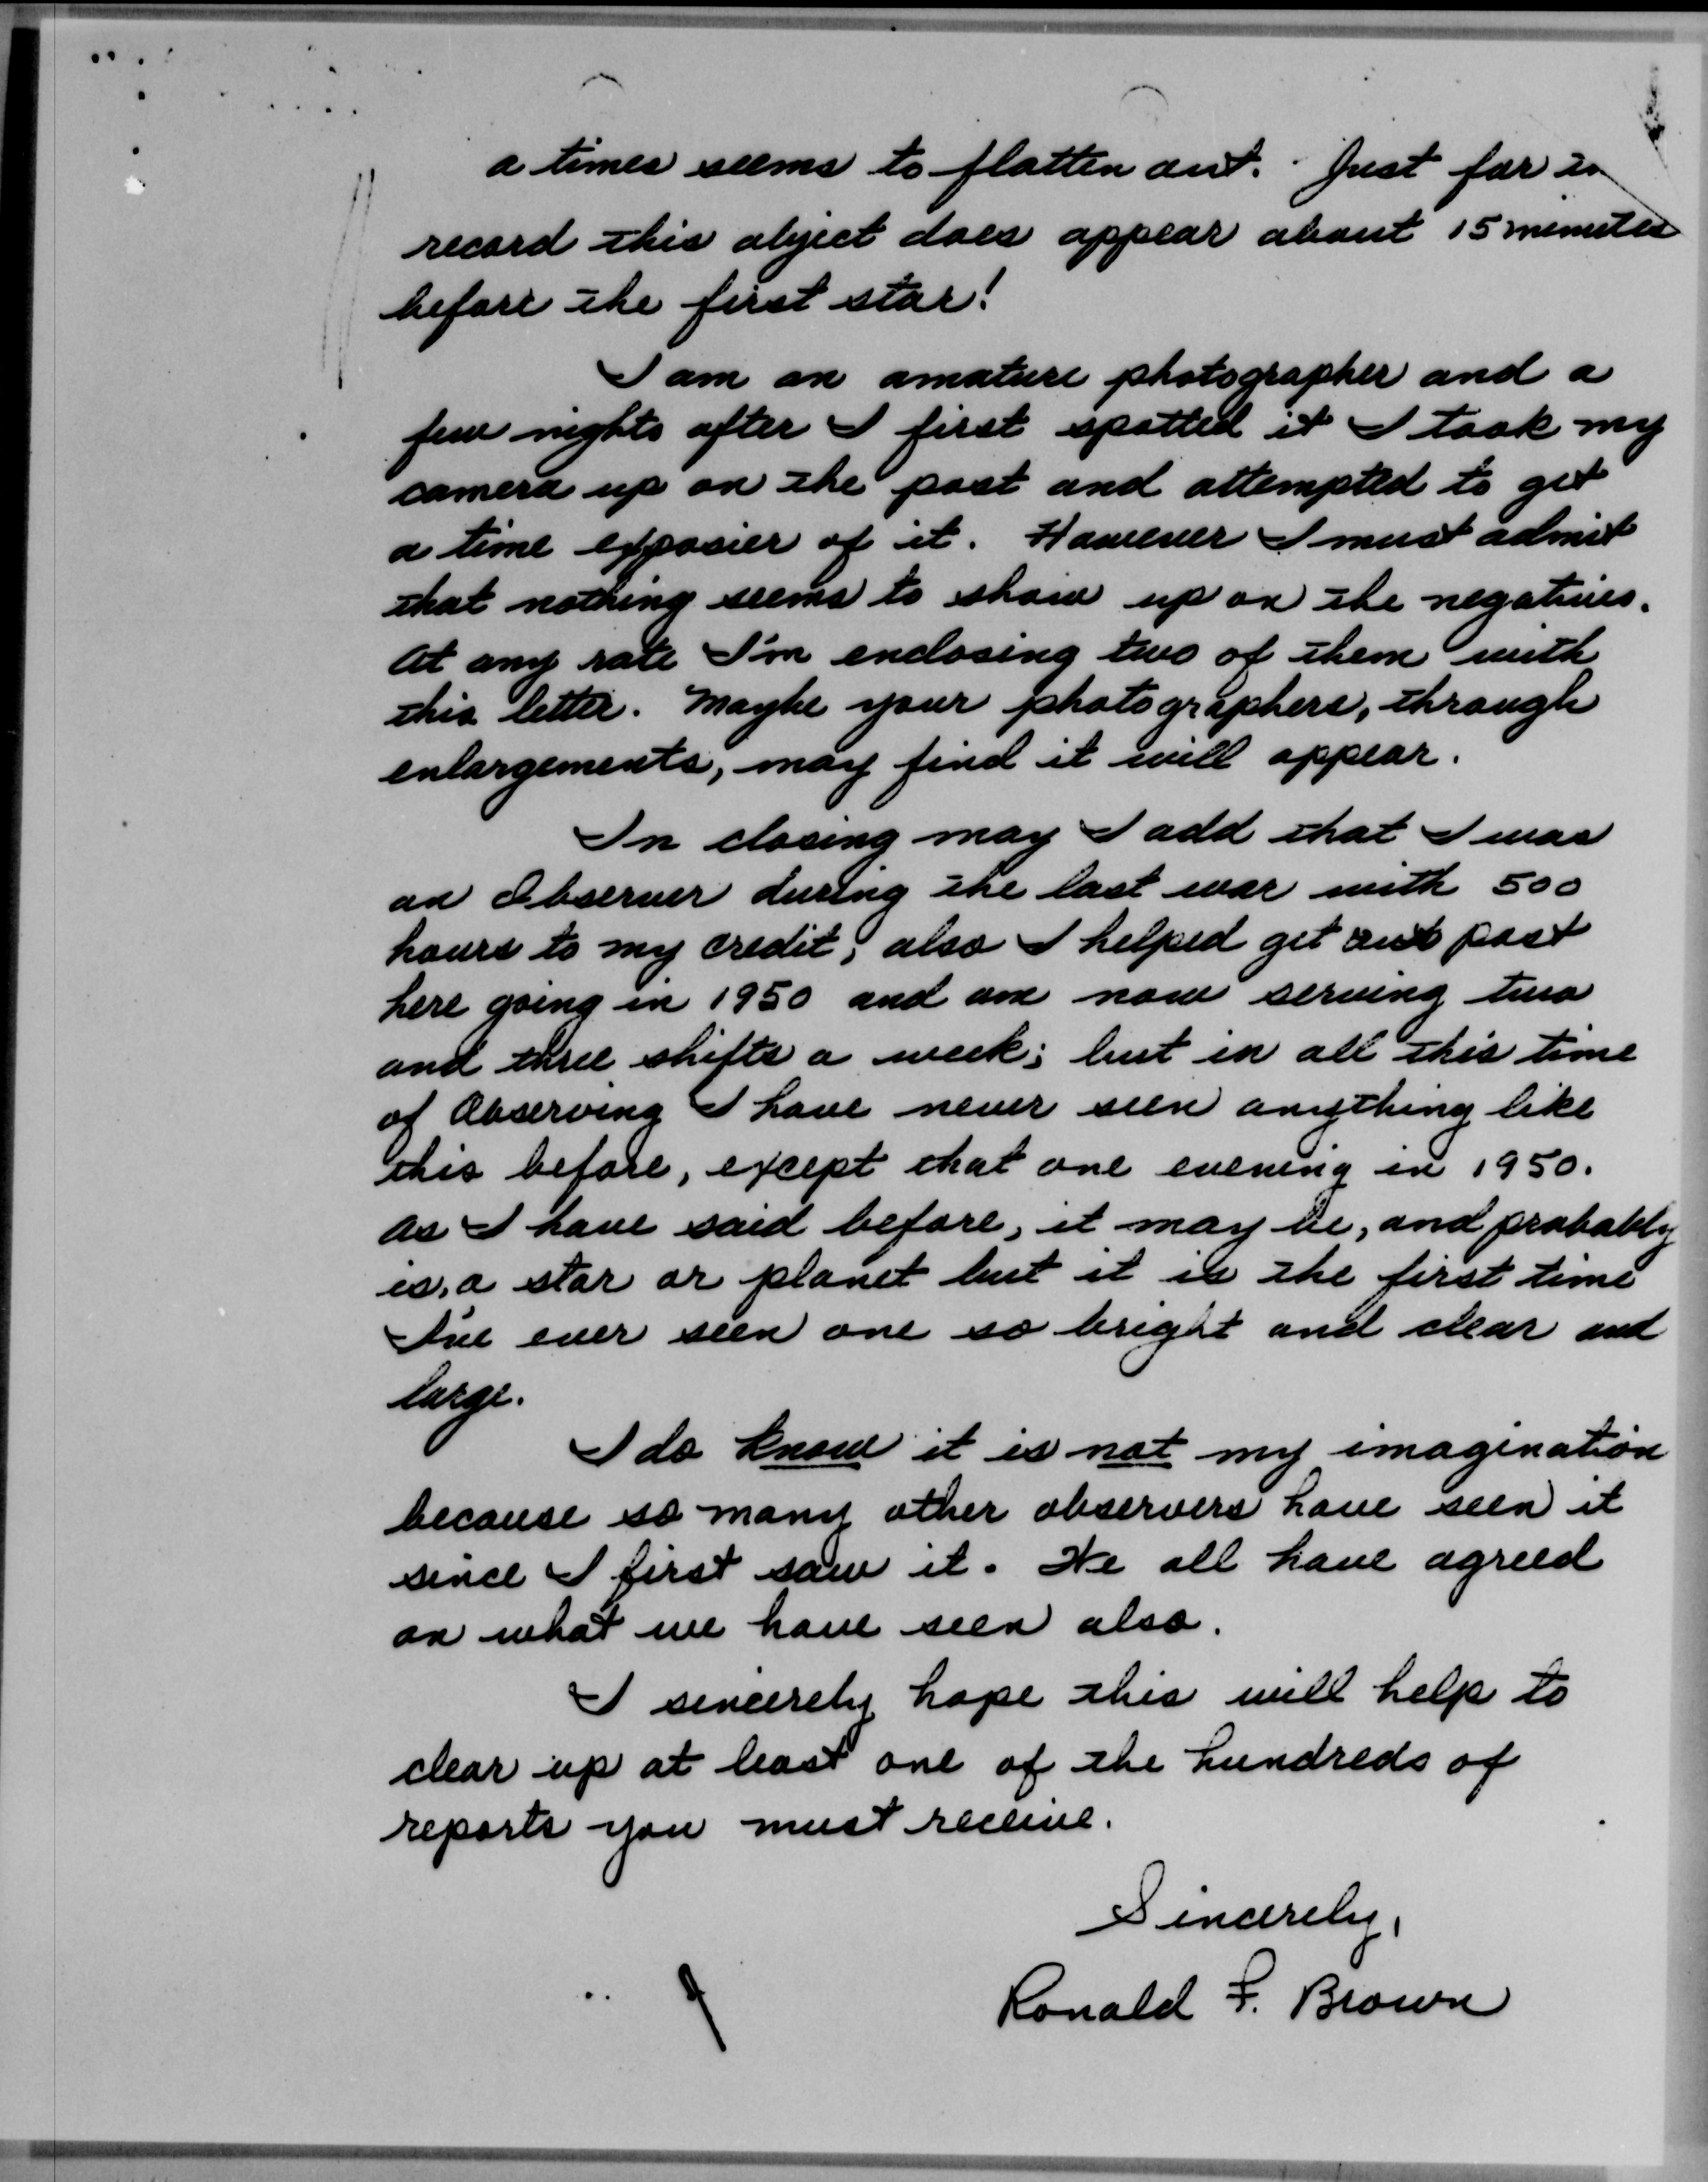 a times seems to flatten out. Just for
record this object does appear about 15 minutes
before the first star!
I am an amature photographer and a
few nights after I first spotted it I took my
camera up on the post and attempted to get
a time exposier of it. However I must admit
that nothing seems to show up on the negatives.
At any rate I'm enclosing two of them with
this letter. Maybe your photographers, through
enlargements, may find it will appear.
In closing may I add that I was
an Observer during the last war with 500
hours to my credit; also I helped get out post
here going in 1950 and am now serving two
and three shifts a week; but in all this time
of Observing I have never seen anything like
this before, except that one evening in 1950.
As I have said before, it may be, and probably
is, a star or planet but it is the first time
I've ever seen one so bright and clear and
large.
I do know it is not my imagination
because so many other observers have seen it
since I first saw it. We all have agreed
on what we have seen also.
I sincerely hope this will help to
clear up at least one of the hundreds of
reports you must receive.
Sincerely,
Ronald F. Brown